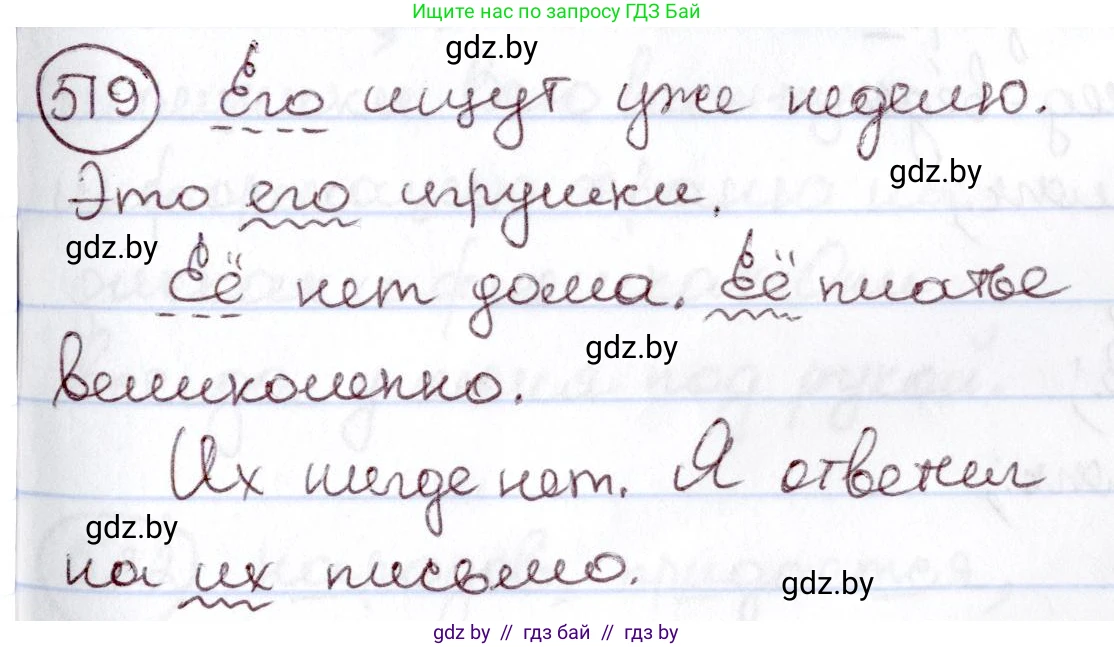 Ищите нас по запросу ГДЗ Бай
gdz.by
519 Его ищут уже неделю.
gdz.by
Это его игрушки.
gdz.by
Её нет дома. Её платье
gdz.by
великолепно.
Их нигде нет. Я ответил
gdz.by
на их письмо.
gdz.by
gdz by // гдз бай // гдз by